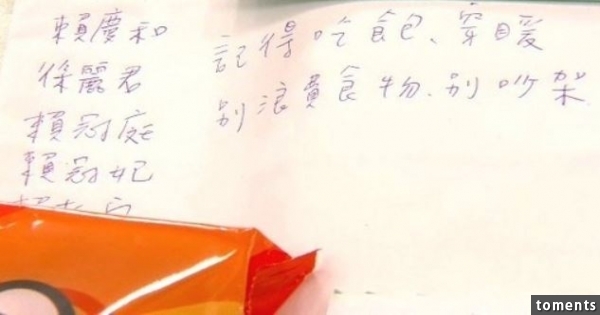 賴慶和
徐麗君
賴冠庭
賴冠妃
記得吃飽、穿暖
別浪費食物、別吵架
toments